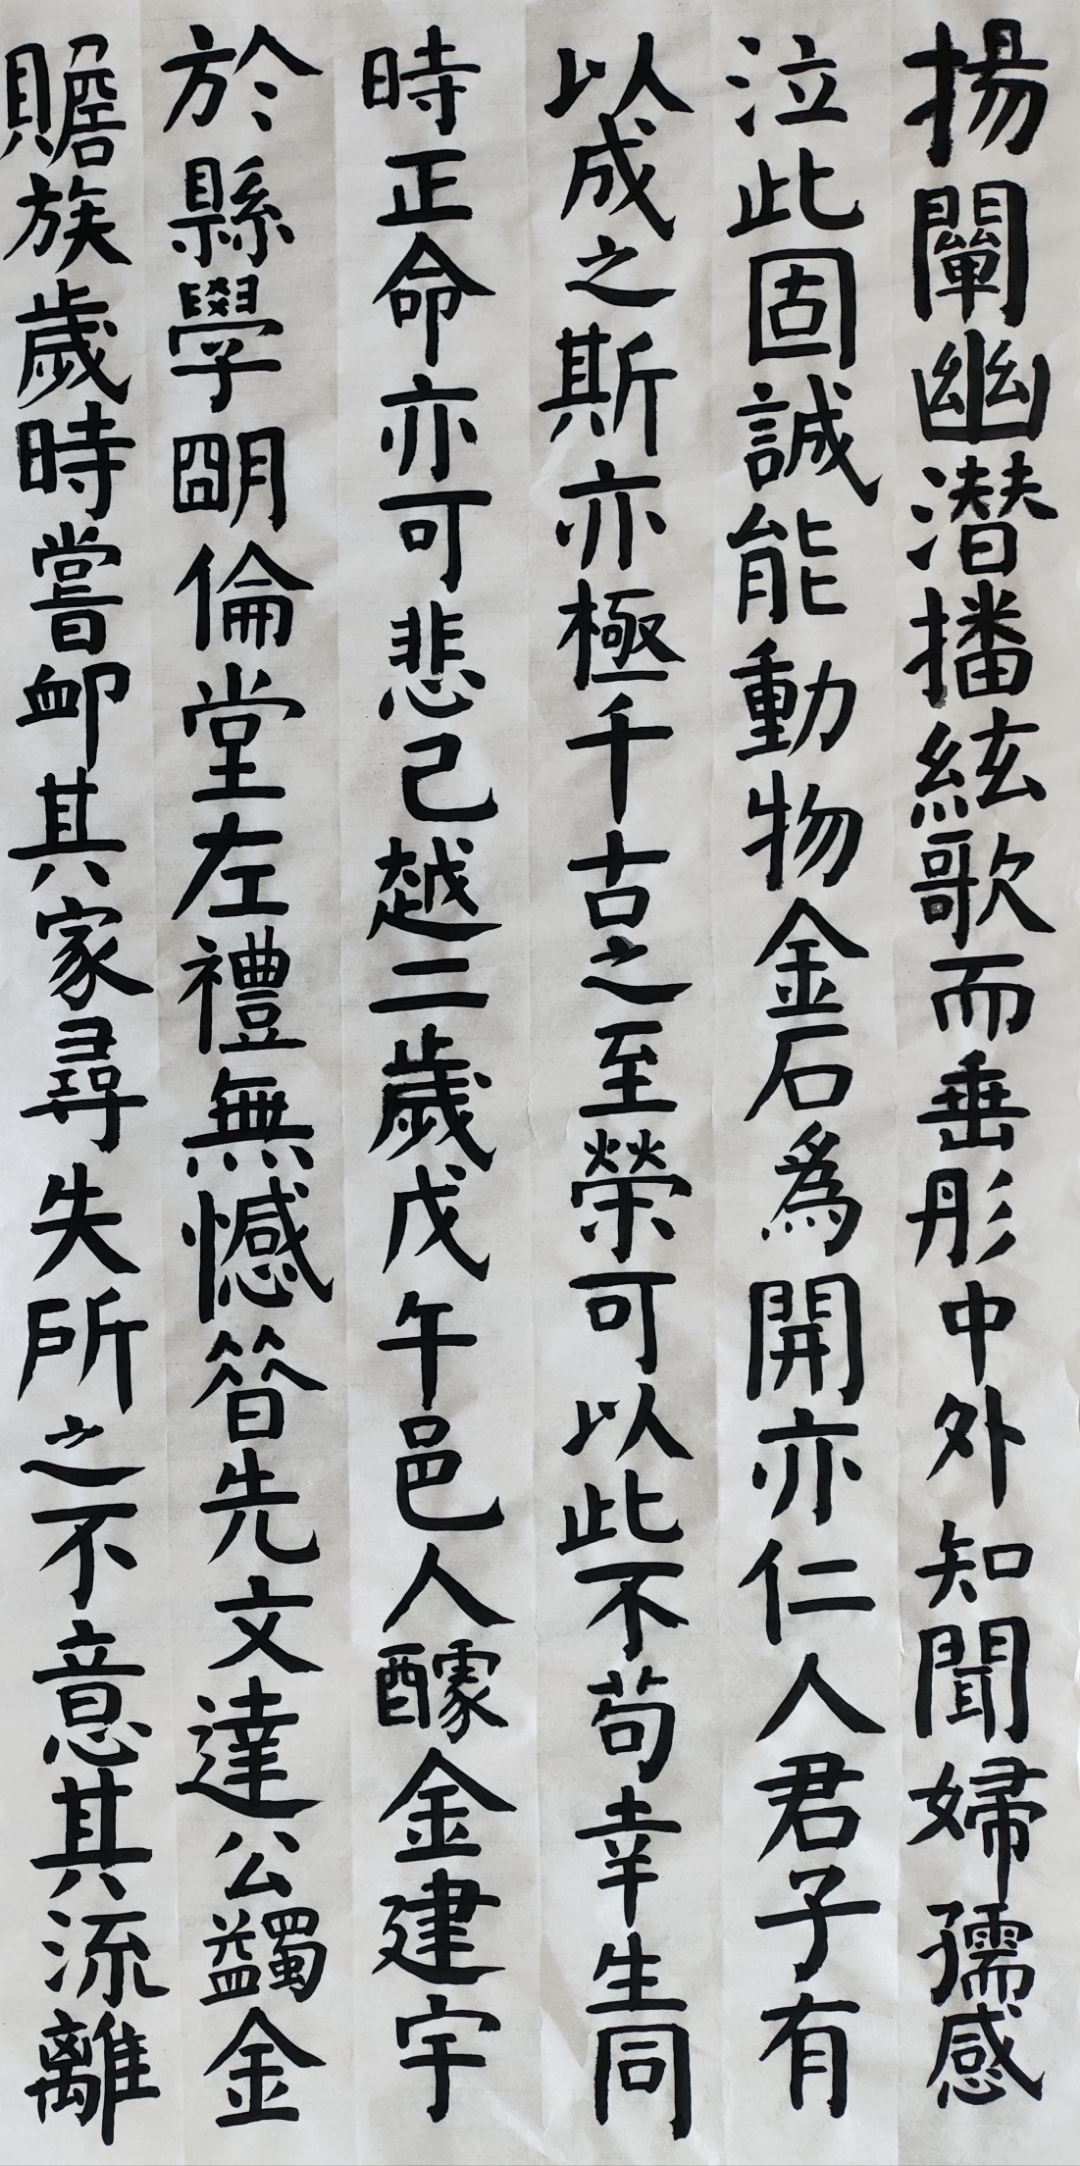 揚闡幽潛播絃歌而垂彤中外知聞婦孺感
泣此固誠能動物金石爲開亦仁人君子有
以成之斯亦極千古之至榮可以此不苟幸生同
時正命亦可悲已越二歲戊午邑人醵金建宇
於縣學明倫堂左禮無憾答先文達公蠲金
贍族歲時嘗卹其家尋失所之不意其流離